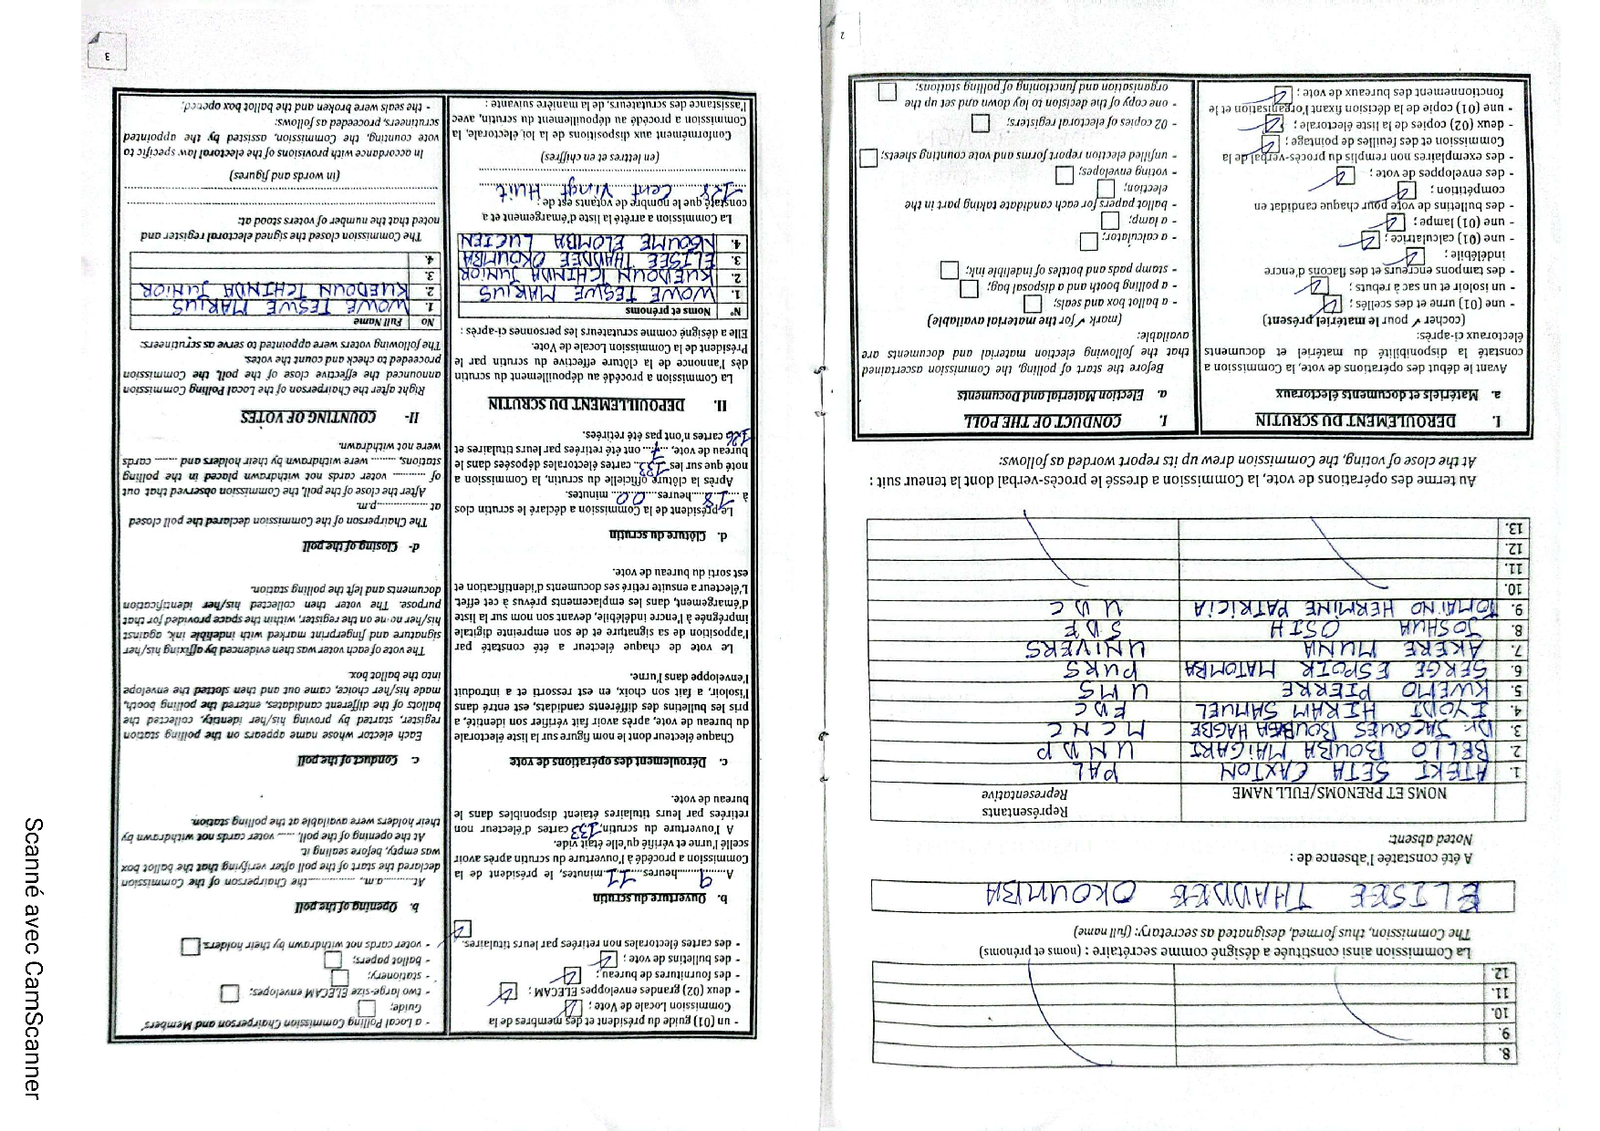 8.
9.
10.
11.
12.
La Commission ainsi constituée a désigné comme secrétaire : (noms et prénoms)
The Commission, thus formed, designated as secretary: (full name)
ELISEE THADDEE OKOUMBA
A été constatée l'absence de :
Noted absent:
NOMS ET PRENOMS/FULL NAME Représentants
Representative
1. ATEKI SETA CAXTON PAL
2. BELLO BOUBA MAIGARI UNDP
3. Dr JACQUES BOUGHA HAGBE MCNC
4. IYODI HIRAM SAMUEL FDC
5. KWEMO PIERRE UMS
6. SERGE ESPOIR MATOMBA PURS
7. AKERE MUNA UNIVERS
8. JOSHUA OSIH SDF
9. TOMAINO HERMINE PATRICIA UDC
10.
11.
12.
13.
Au terme des opérations de vote, la Commission a dressé le procès-verbal dont la teneur suit :
At the close of voting, the Commission drew up its report worded as follows:
I. DEROULEMENT DU SCRUTIN
a. Matériels et documents électoraux
Avant le début des opérations de vote, la Commission a
constaté la disponibilité du matériel et documents
électoraux ci-après:
(cocher ✓ pour le matériel présent)
- une (01) urne et des scellés ;
- un isoloir et un sac à rebuts ;
- des tampons encreurs et des flacons d'encre
indélébile ;
- une (01) calculatrice ;
- une (01) lampe ;
- des bulletins de vote pour chaque candidat en
compétition ;
- des enveloppes de vote ;
- des exemplaires non remplis du procès-verbal de la
Commission et des feuilles de pointage ;
- deux (02) copies de la liste électorale ;
- une (01) copie de la décision fixant l'organisation et le
fonctionnement des bureaux de vote ;
I. CONDUCT OF THE POLL
a. Election Material and Documents
Before the start of polling, the Commission ascertained
that the following election material and documents are
available:
(mark ✓ for the material available)
- a ballot box and seals;
- a polling booth and a disposal bag;
- stamp pads and bottles of indelible ink;
- a calculator;
- a lamp;
- ballot papers for each candidate taking part in the
election;
- voting envelopes;
- unfilled election report forms and vote counting sheets;
- 02 copies of electoral registers;
- one copy of the decision to lay down and set up the
organisation and functioning of polling stations;
2
- un (01) guide du président et des membres de la
Commission Locale de Vote ;
- deux (02) grandes enveloppes ELECAM ;
- des fournitures de bureau ;
- des bulletins de vote ;
- des cartes électorales non retirées par leurs titulaires.
b. Ouverture du scrutin
A 9 heures 11 minutes, le président de la
Commission a procédé à l'ouverture du scrutin après avoir
scellé l'urne et vérifié qu'elle était vide.
A l'ouverture du scrutin, 133 cartes d'électeur non
retirées par leurs titulaires étaient disponibles dans le
bureau de vote.
c. Déroulement des opérations de vote
Chaque électeur dont le nom figure sur la liste électorale
du bureau de vote, après avoir fait vérifier son identité, a
pris les bulletins des différents candidats, est entré dans
l'isoloir, a fait son choix, en est ressorti et a introduit
l'enveloppe dans l'urne.
Le vote de chaque électeur a été constaté par
l'apposition de sa signature et de son empreinte digitale
imprégnée à l'encre indélébile, devant son nom sur la liste
d'émargement, dans les emplacements prévus à cet effet.
L'électeur a ensuite retiré ses documents d'identification et
est sorti du bureau de vote.
d. Clôture du scrutin
Le président de la Commission a déclaré le scrutin clos
à 18 heures 00 minutes.
Après la clôture officielle du scrutin, la Commission a
noté que sur les 133 cartes électorales déposées dans le
bureau de vote, 7 ont été retirées par leurs titulaires et
126 cartes n'ont pas été retirées.
II. DEPOUILLEMENT DU SCRUTIN
La Commission a procédé au dépouillement du scrutin
dès l'annonce de la clôture effective du scrutin par le
Président de la Commission Locale de Vote.
Elle a désigné comme scrutateurs les personnes ci-après :
N° Noms et prénoms
1. WOWE TESWE MARIUS
2. KUEDOUN TCHINDA JUNIOR
3. ELISEE THADDEE OKOUMBA
4. NGOUME ELOMBA LUCIEN
La Commission a arrêté la liste d'émargement et a
constaté que le nombre de votants est de :
128 Cent Vingt Huit
(en lettres et en chiffres)
Conformément aux dispositions de la loi électorale, la
Commission a procédé au dépouillement du scrutin, avec
l'assistance des scrutateurs, de la manière suivante :
- a Local Polling Commission Chairperson and Members'
Guide;
- two large-size ELECAM envelopes;
- stationery;
- ballot papers;
- voter cards not withdrawn by their holders.
b. Opening of the poll
At ........a.m, ............the Chairperson of the Commission
declared the start of the poll after verifying that the ballot box
was empty, before sealing it.
At the opening of the poll, ..... voter cards not withdrawn by
their holders were available at the polling station.
c. Conduct of the poll
Each elector whose name appears on the polling station
register, started by proving his/her identity, collected the
ballots of the different candidates, entered the polling booth,
made his/her choice, came out and then slotted the envelope
into the ballot box.
The vote of each voter was then evidenced by affixing his/her
signature and fingerprint marked with indelible ink, against
his/her no:ne on the register, within the space provided for that
purpose. The voter then collected his/her identification
documents and left the polling station.
d- Closing of the poll
The Chairperson of the Commission declared the poll closed
at ...............p.m.
After the close of the poll, the Commission observed that out
of .......... voter cards not withdrawn placed in the polling
stations, ....... were withdrawn by their holders and ...... cards
were not withdrawn.
II- COUNTING OF VOTES
Right after the Chairperson of the Local Polling Commission
announced the effective close of the poll, the Commission
proceeded to check and count the votes.
The following voters were appointed to serve as scrutineers:
No Full Name
1. WOWE TESWE MARIUS
2. KUEDOUN TCHINDA JUNIOR
3.
4.
The Commission closed the signed electoral register and
noted that the number of voters stood at:
(in words and figures)
In accordance with provisions of the electoral law specific to
vote counting, the Commission, assisted by the appointed
scrutineers, proceeded as follows:
- the seals were broken and the ballot box opened.
3
Scanné avec CamScanner